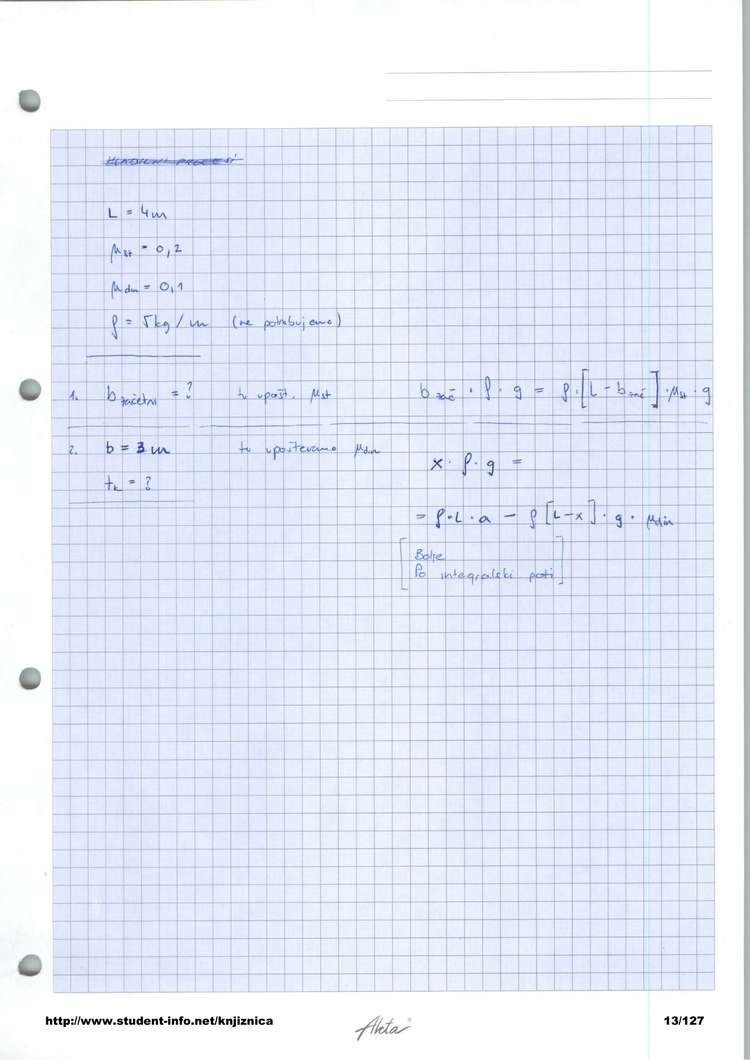 L = 4m
μst = 0,2
μdin = 0,1
ρ = 5kg/m (ne potrebujemo)
1. b začetni = ? tu upošt. μst b zač · ρ · g = ρ · [L - b zač] · μst · g
2. b = 3m tu upoštevamo μdin
x · ρ · g =
tk = ?
= ρ · L · a - ρ [L-x] · g · μdin
Bolje
Po integralski poti
http://www.student-info.net/knjiznica
Akta
13/127